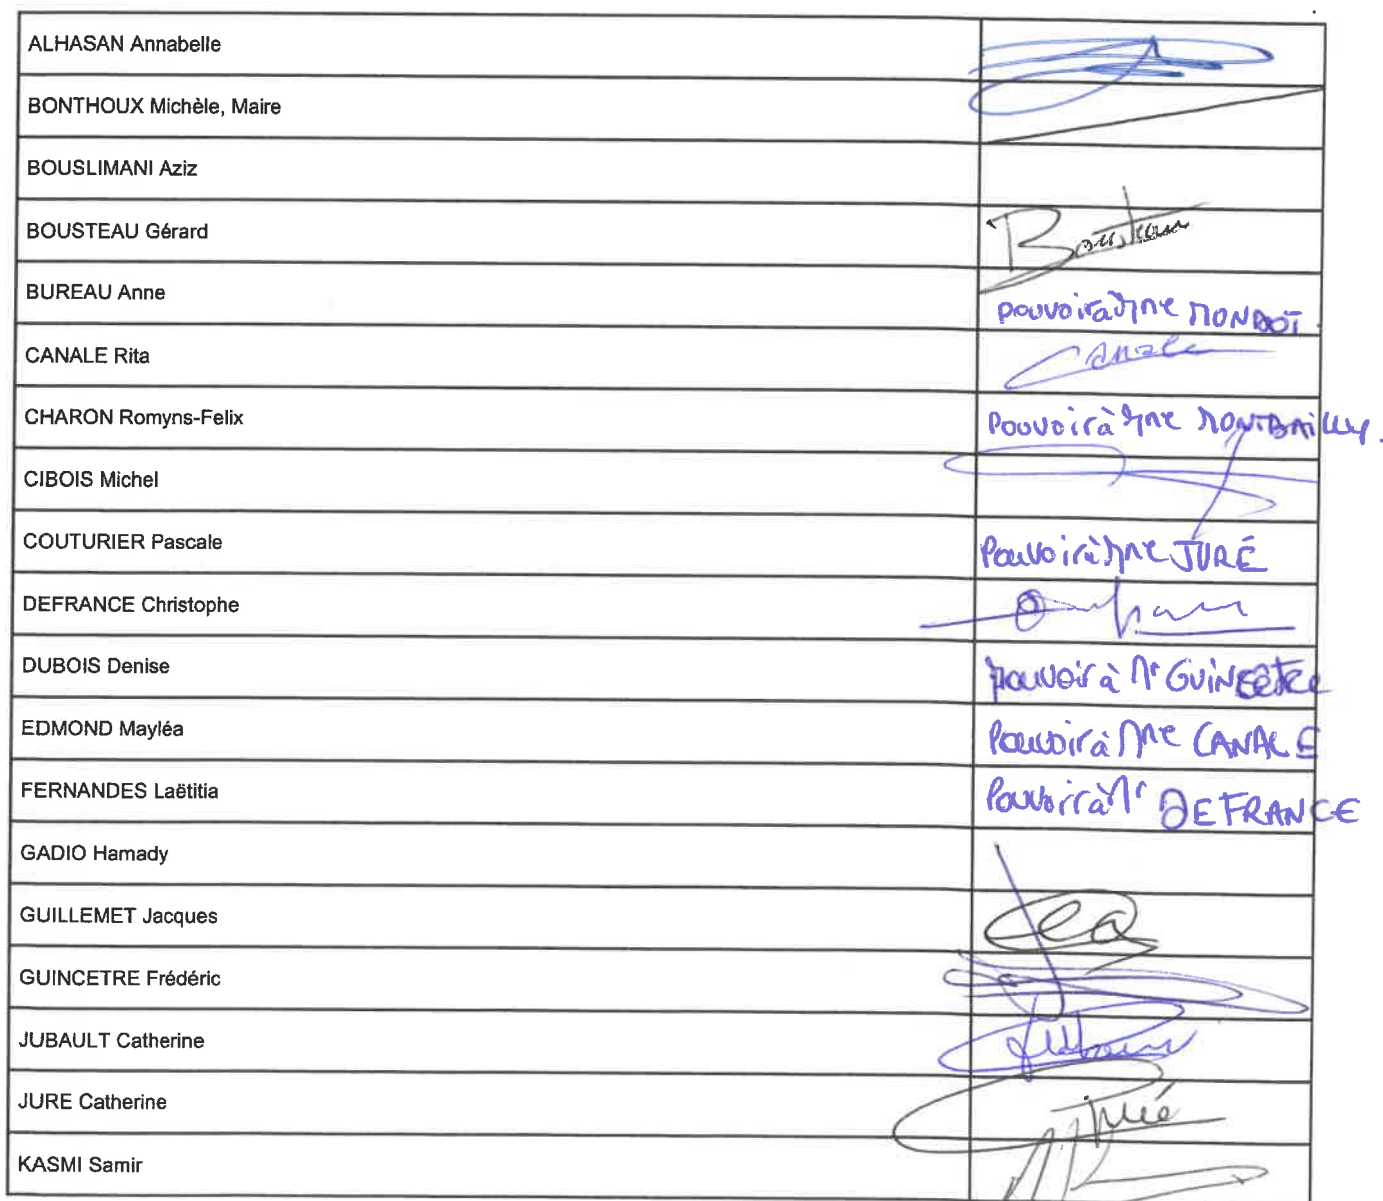 ALHASAN Annabelle
BONTHOUX Michèle, Maire
BOUSLIMANI Aziz
BOUSTEAU Gérard
BUREAU Anne pouvoir à Mme MONDOT.
CANALE Rita Canale
CHARON Romyns-Felix Pouvoir à Mme MONTBAILLY.
CIBOIS Michel
COUTURIER Pascale Pouvoir à Mme JURÉ
DEFRANCE Christophe
DUBOIS Denise pouvoir à Mr GUINCETRE
EDMOND Mayléa Pouvoir à Mme CANALE
FERNANDES Laëtitia Pouvoir à Mr DEFRANCE
GADIO Hamady
GUILLEMET Jacques
GUINCETRE Frédéric
JUBAULT Catherine
JURE Catherine Juré
KASMI Samir